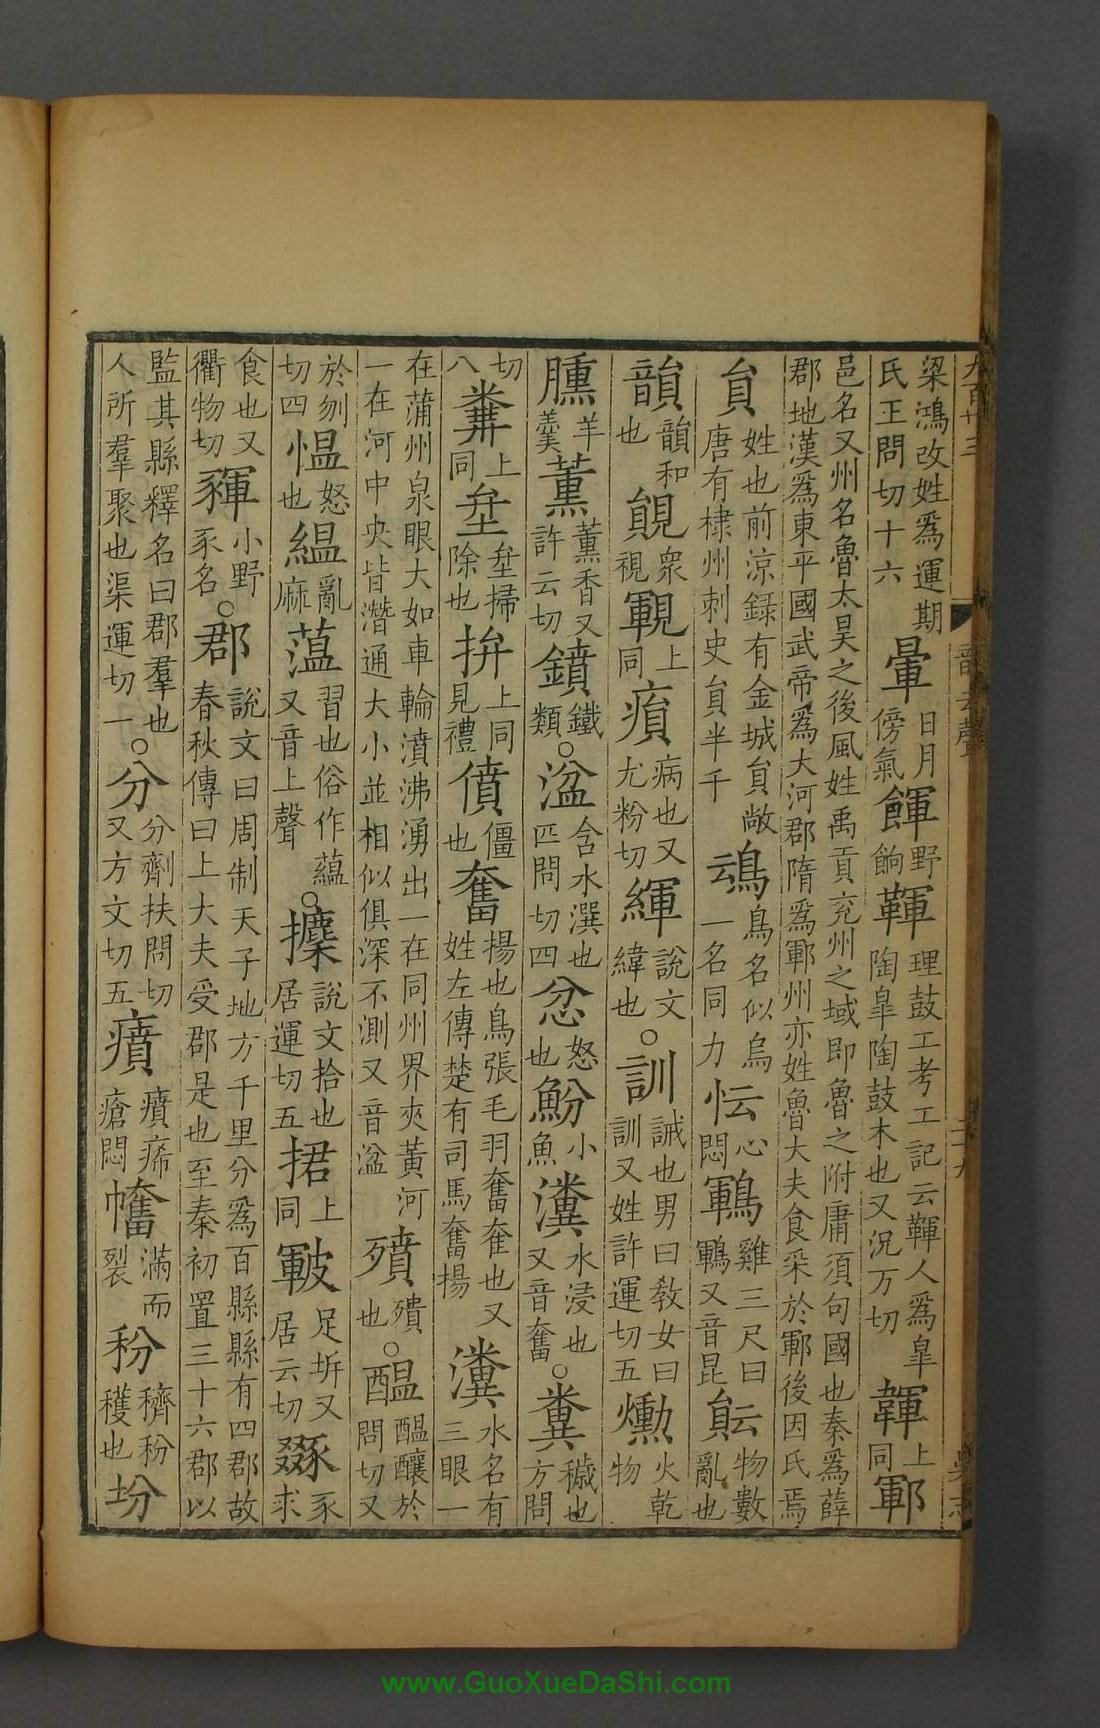 梁鴻改姓爲運期氏王問切十六暈日月傍氣餫野餉鞸理鼓工考工記云韗人爲皐陶皐陶鼓木也又況万切韗上同鄆
邑名又州名魯太昊之後風姓禹貢兖州之域即魯之附庸須句國也秦爲薛郡地漢爲東平國武帝爲大河郡隋爲鄆州亦姓魯大夫食采於鄆後因氏焉
貟姓也前涼録有金城貟敞唐有棣州刺史貟半千䲰鳥名似烏一名同力忶心悶鶤雞三尺曰鶤又音昆䫟物數亂也
韻韻和也䚋衆視䡣上同㾓病也又尤粉切緷說文緯也○訓誡也男曰教女曰訓又姓許運切五爋火乾物
臐羊羹薫薫香又許云切鐼鐵類○湓含水潠也匹問切四忿怒也魵小魚瀵水浸也又音奮○糞穢也方問
切八𡊅上同坌坌掃除也拚上同見禮僨僵也奮揚也鳥張毛羽奮奞也又姓左傳楚有司馬奮揚瀵水名有三眼一
在蒲州泉眼大如車輪濆沸湧出一在同州界夾黃河一在河中央皆潛通大小並相似俱深不測又音湓㱵殨也○醖醖釀於問切又
於刎切四愠怒也緼亂麻藴習也俗作蘊又音上聲○攈說文拾也居運切五捃上同皸足坼又居云切豕求
食也又衢物切䝐小野豕名○郡說文曰周制天子地方千里分爲百縣縣有四郡故春秋傳曰上大夫受郡是也至秦初置三十六郡以
監其縣釋名曰郡羣也人所羣聚也渠運切一○分分劑扶問切又方文切五㿎㿎疿瘡悶㡜滿而裂秎穧秎穫也坋
www.GuoXueDaShi.com